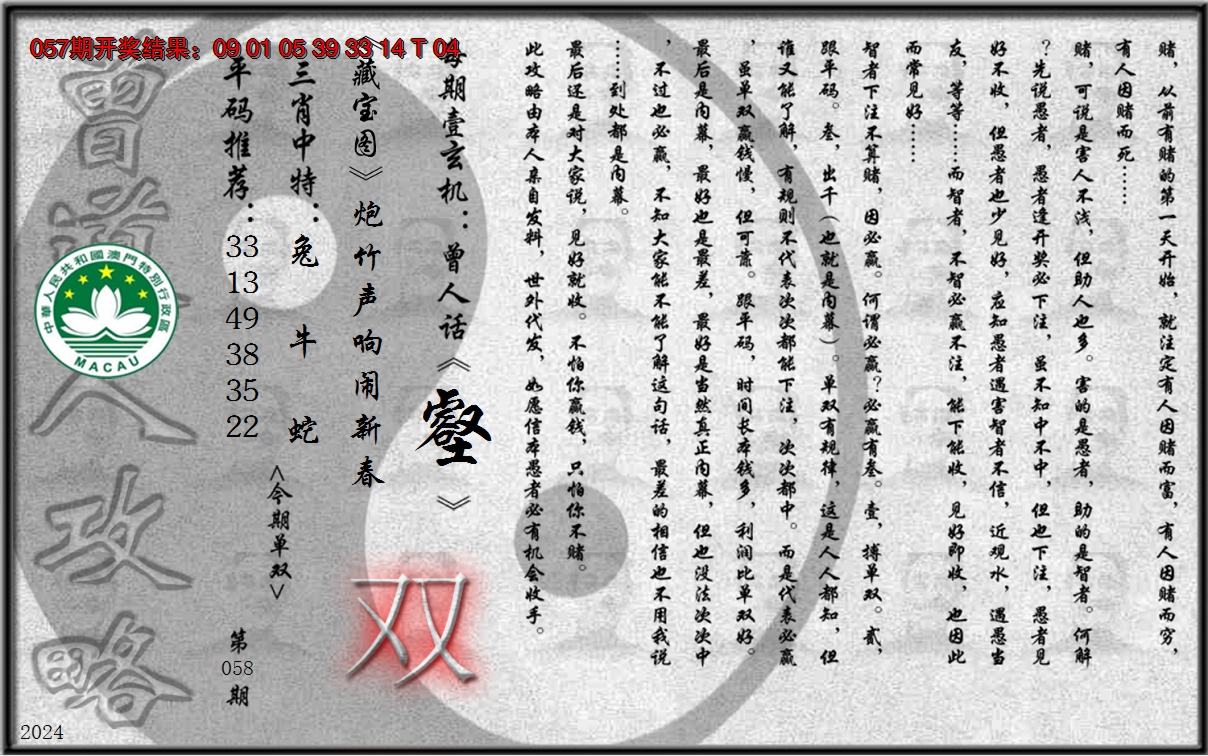 057期开奖结果：09 01 05 39 33 14 T 04
赌，从前有赌的第一天开始，就注定有人因赌而富，有人因赌而穷，
有人因赌而死……
赌，可说是害人不浅，但助人也多。害的是愚者，助的是智者。何解
？先说愚者，愚者逢开奖必下注，虽不知中不中，但也下注，愚者见
好不收，但愚者也少见好，应知愚者遇害智者不信，近观水，遇愚当
友，等等……而智者，不智必赢不注，能下能收，见好即收，也因此
而常见好……
智者下注不算赌，因必赢。何谓必赢？必赢有叁。壹，搏单双。贰，
跟平码。叁，出千（也就是内幕）。单双有规律，这是人人都知，但
谁又能了解，有规则不代表次次都能下注，次次都中。而是代表必赢
，虽单双赢钱慢，但可靠。跟平码，时间长本钱多，利润比单双好。
最后是内幕，最好也是最差，最好是当然真正内幕，但也没法次次中
，不过也必赢，不知大家能不能了解这句话，最差的相信也不用我说
……到处都是内幕。
最后还是对大家说，见好就收。不怕你赢钱，只怕你不赌。
此攻略由本人亲自发料，世外代发，如愿信本愚者必有机会收手。
每期壹玄机：曾人话《壑》
《藏宝图》炮竹声响闹新春
双
三肖中特：兔 牛 蛇
<今期单双>
平码推荐：33 13 49 38 35 22
第058期
曾道人攻略
中華人民共和國澳門特別行政區
MACAU
2024